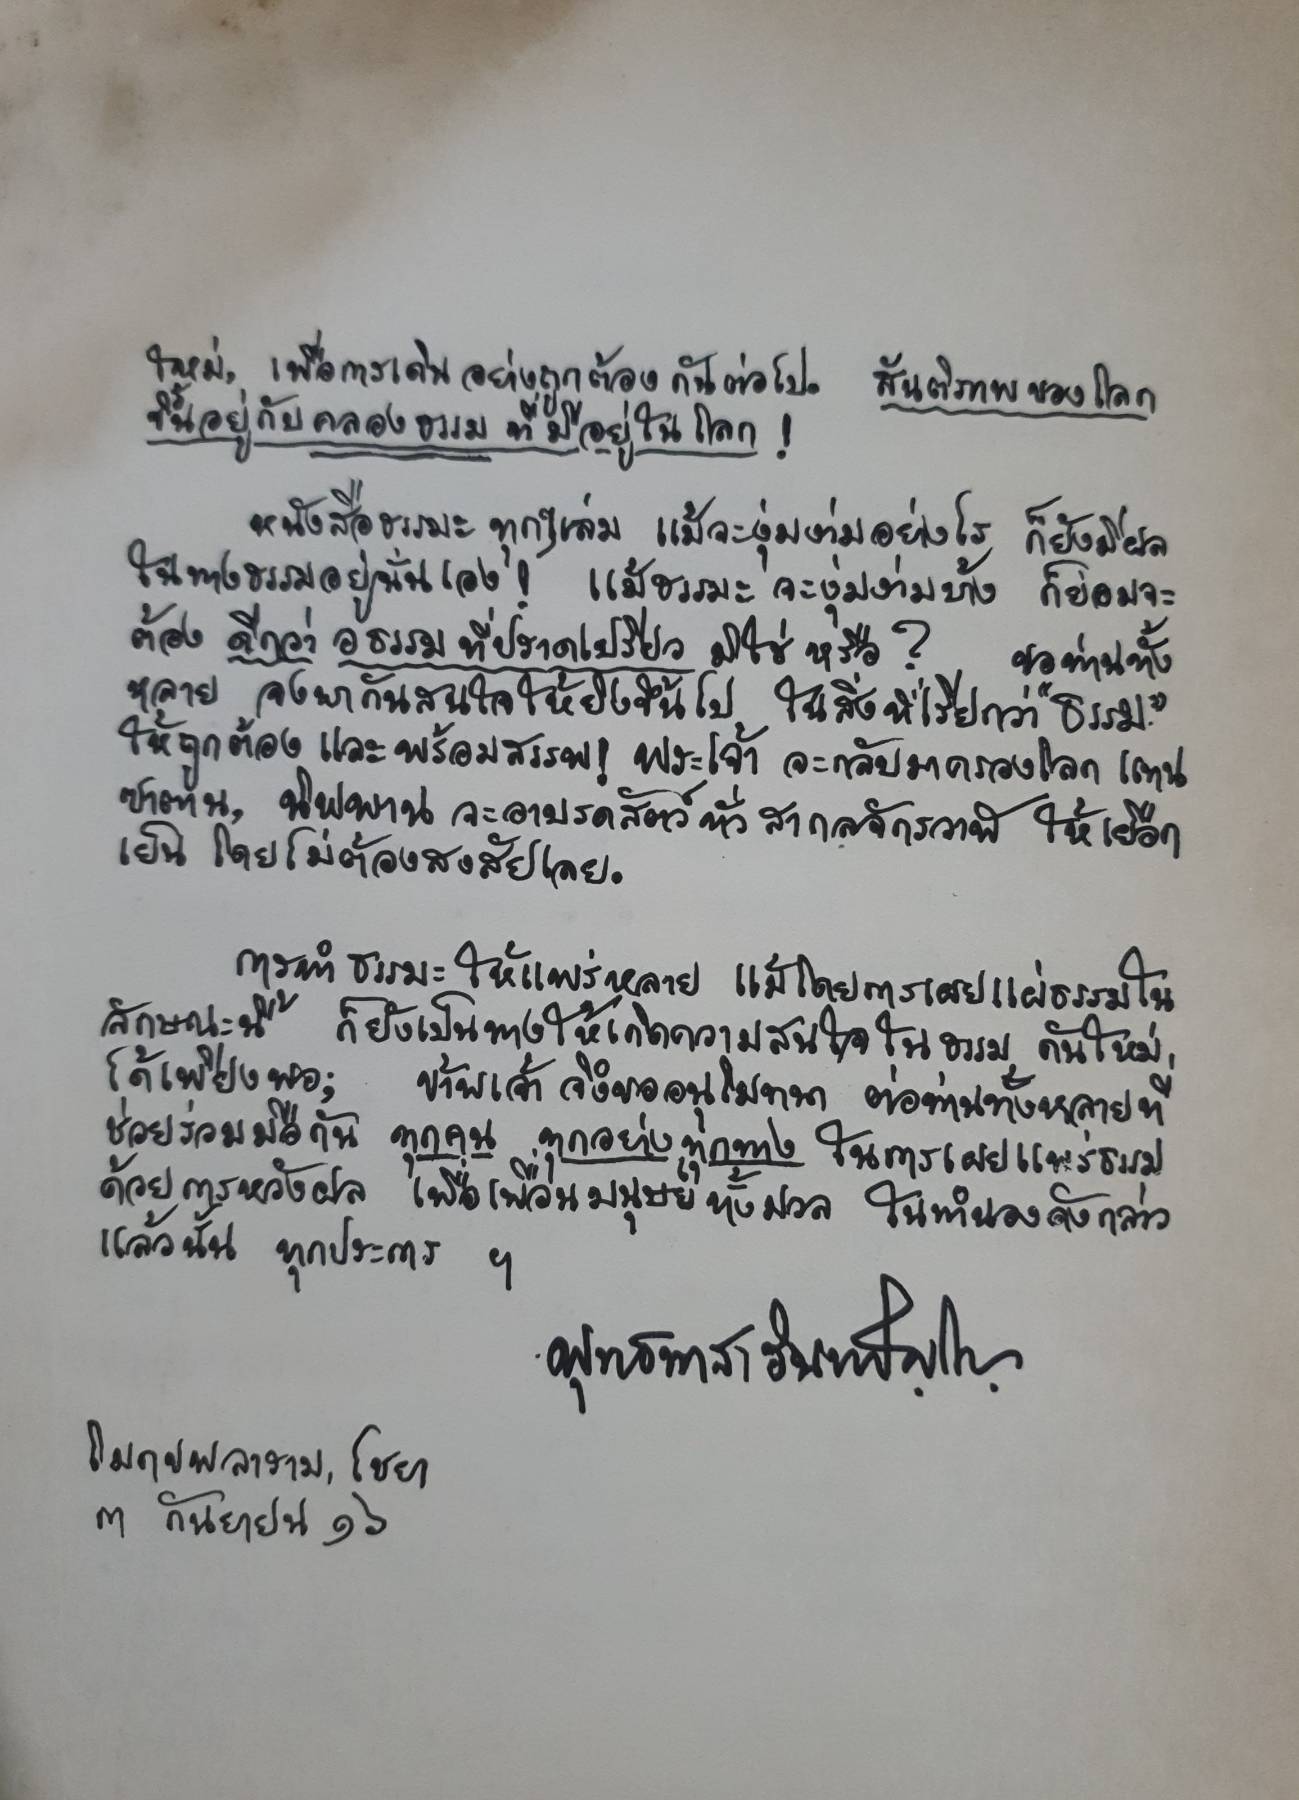 ใหม่, เพื่อการเดินอย่างถูกต้อง กันต่อไป. สันติภาพของโลก
ขึ้นอยู่กับคลองธรรม ที่มีอยู่ในโลก !
หนังสือธรรมะ ทุกๆเล่ม แม้จะงุ่มง่ามอย่างไร ก็ยังมีผล
ในทางธรรมอยู่นั่นเอง ! แม้ธรรมะ จะงุ่มง่ามบ้าง ก็ย่อมจะ
ต้อง ดีกว่า อธรรม ที่ปราดเปรียว มิใช่ หรือ ? ขอท่านทั้ง
หลาย จงพากันสนใจให้ยิ่งขึ้นไป ในสิ่งที่เรียกว่า "ธรรมะ"
ให้ถูกต้อง และพร้อมสรรพ! พระเจ้า จะกลับมาครองโลก แทน
ซาตาน, นิพพาน จะอาบรดสัตว์ ทั่ว สากลจักรวาฬ ให้เยือก
เย็น โดยไม่ต้องสงสัยเลย.
การทำ ธรรมะ ให้แพร่หลาย แม้โดยการเผยแผ่ธรรมใน
ลักษณะนี้ ก็ยังเป็นทางให้เกิดความสนใจ ในธรรม กันใหม่,
ได้เพียงพอ; ข้าพเจ้า จึงขออนุโมทนา ต่อท่านทั้งหลายที่
ช่วยร่วมมือกัน ทุกคน ทุกอย่าง ทุกทาง ในการเผยแพร่ธรรม
ด้วยการหวังผล เพื่อเพื่อนมนุษย์ทั้งมวล ในทำนองดังกล่าว
แล้วนั้น ทุกประการ ฯ
พุทธทาส อินทปัญโญ
โมกขพลาราม, ไชยา
๓ กันยายน ๑๖